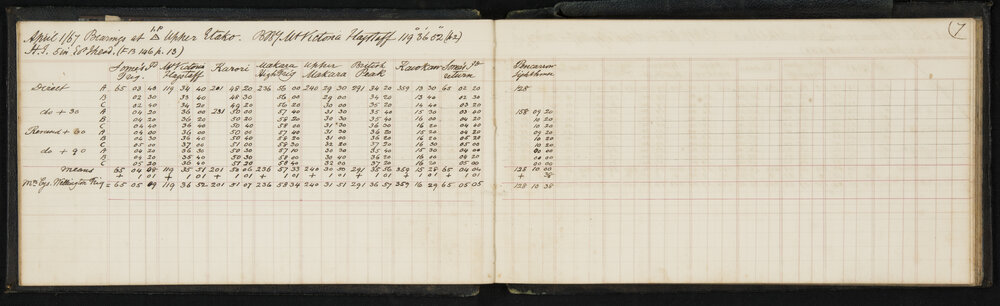 April 1/67 Bearings at L.P. △ Upper Etako. B.M.J. Mt Victoria Flagstaff 119° 36' 52"
H.I. 5 in (F.B. 146 p. 13)
7
Somes Id Trig. Mt Victoria Flagstaff Karori Makara High Trig Upper Makara British Peak Somes Id return Pencarrow Lighthouse
Direct A 65 03 40 119 34 40 201 48 20 236 56 00 240 29 30 291 34 20 359 13 30 65 02 20 128
B 02 30 33 40 48 30 56 00 29 00 34 20 13 40 02 30
C 02 40 34 20 49 20 56 20 30 00 35 20 14 40 03 20
do + 30 A 04 20 36 00 231 50 00 57 40 31 30 35 40 15 30 03 00 158 09 20
B 04 20 36 20 50 20 58 20 30 30 35 40 16 00 04 20 10 20
C 04 40 36 40 51 00 58 00 31 30 36 00 16 20 04 40 10 20
Reversed + 60 A 04 00 36 00 50 00 57 40 31 30 36 20 15 20 04 20 09 20
B 06 30 36 40 50 30 58 00 31 30 36 20 16 20 05 20 10 20
C 05 00 37 00 51 00 58 30 31 30 37 00 16 20 05 20 10 20
do + 90 A 04 00 36 30 50 30 57 10 30 30 35 40 15 30 04 00 00 00
B 04 20 35 40 50 30 58 00 30 40 36 20 16 00 04 20 00 00
C 05 20 36 40 51 20 58 40 32 00 37 20 16 20 05 00 00 00
Means 65 04 08 119 35 51 201 50 06 236 57 33 240 30 50 291 35 56 359 15 28 65 04 04 128 10 00
+ 1 01 + 1 01 + 1 01 + 1 01 + 1 01 + 1 01 + 1 01 + 1 01 + 38
Mn Eqs. Wellington Trig = 65 05 09 119 36 52 201 51 07 236 58 34 240 31 51 291 36 57 359 16 29 65 05 05 128 10 38